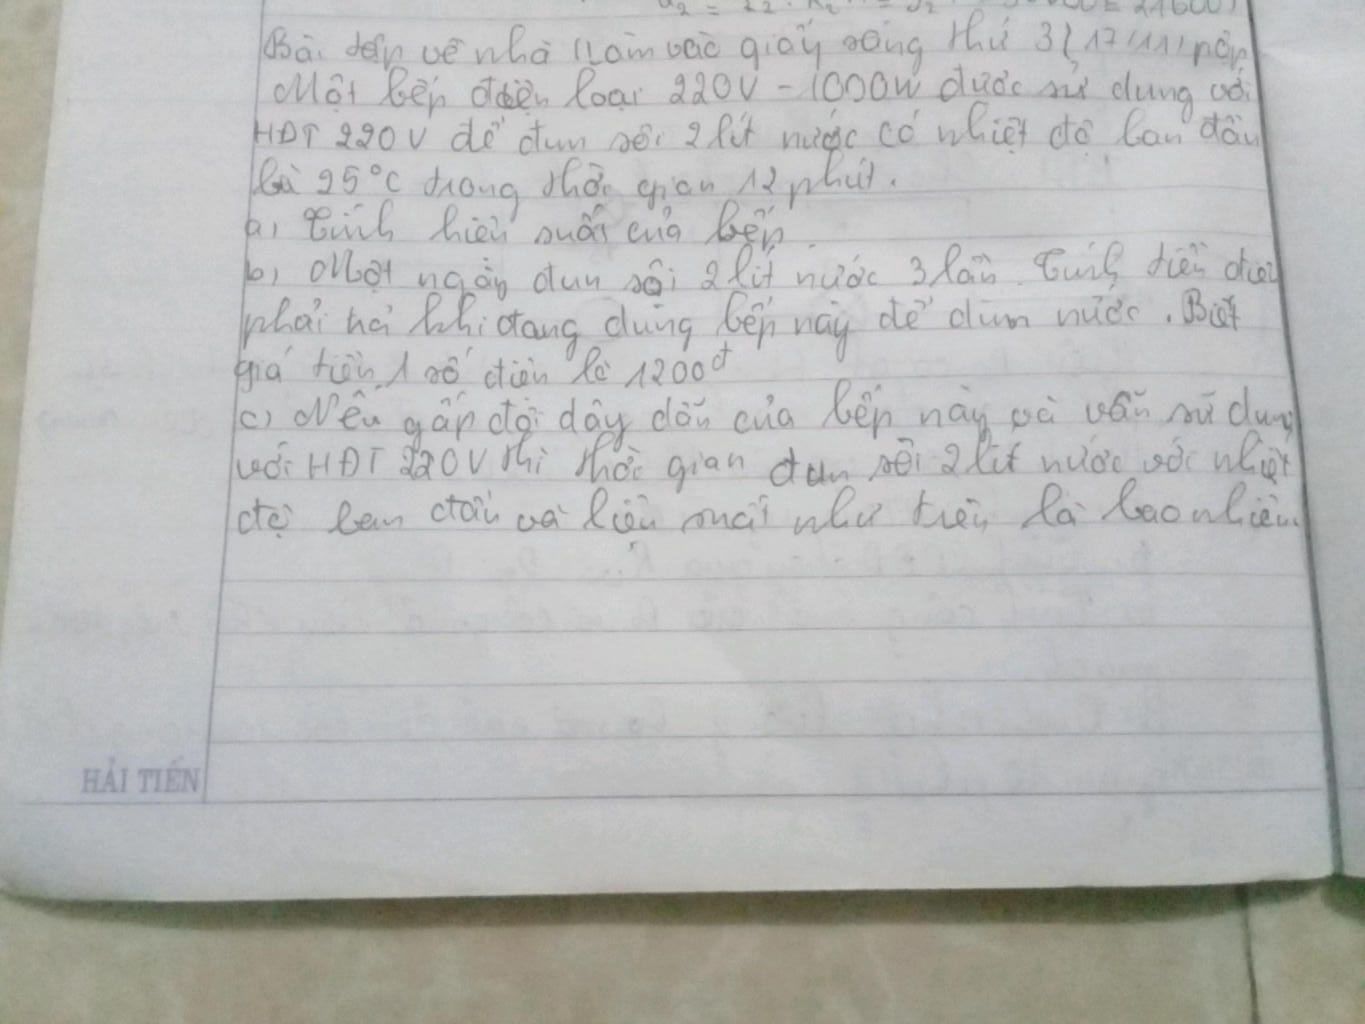 Bài tập về nhà (Làm vào giấy sáng thứ 3 (17/11) nộp
Một bếp điện loại 220V - 1000W được sử dụng với
HĐT 220V để đun sôi 2 lít nước có nhiệt độ ban đầu
là 25°C trong thời gian 12 phút.
a, Tính hiệu suất của bếp.
b, Một ngày đun sôi 2 lít nước 3 lần. Tính tiền điện
phải trả khi dùng bếp này để đun nước. Biết
giá tiền 1 số điện là 1200đ
c) Nếu gấp đôi dây dẫn của bếp này và vẫn sử dụng
với HĐT 220V thì thời gian đun sôi 2 lít nước với nhiệt
độ ban đầu và hiệu suất như trên là bao nhiêu.
HẢI TIẾN